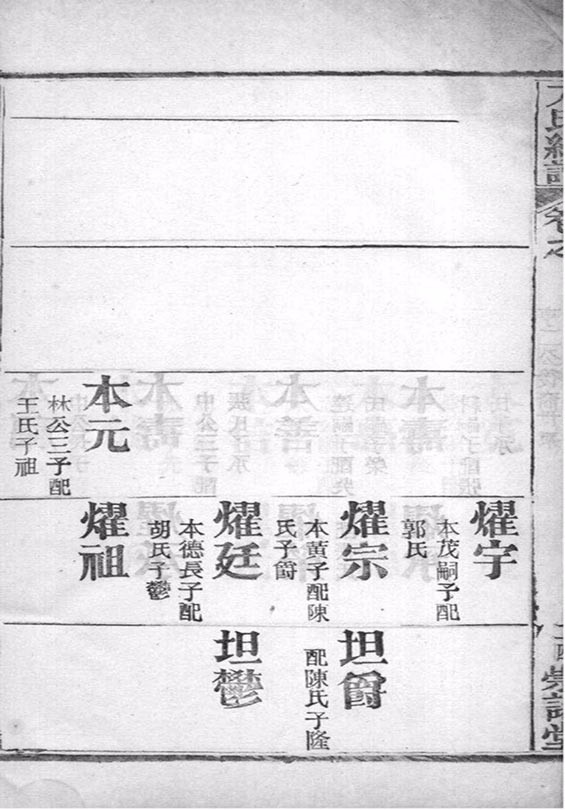 卷之
本元
林公三子配
王氏子祖
燿宇
本茂嗣子配
郭氏
燿宗
本黃子配陳
氏子爵
燿廷
本德長子配
胡氏子鬱
燿祖
坦爵
配陳氏子隆
坦鬱